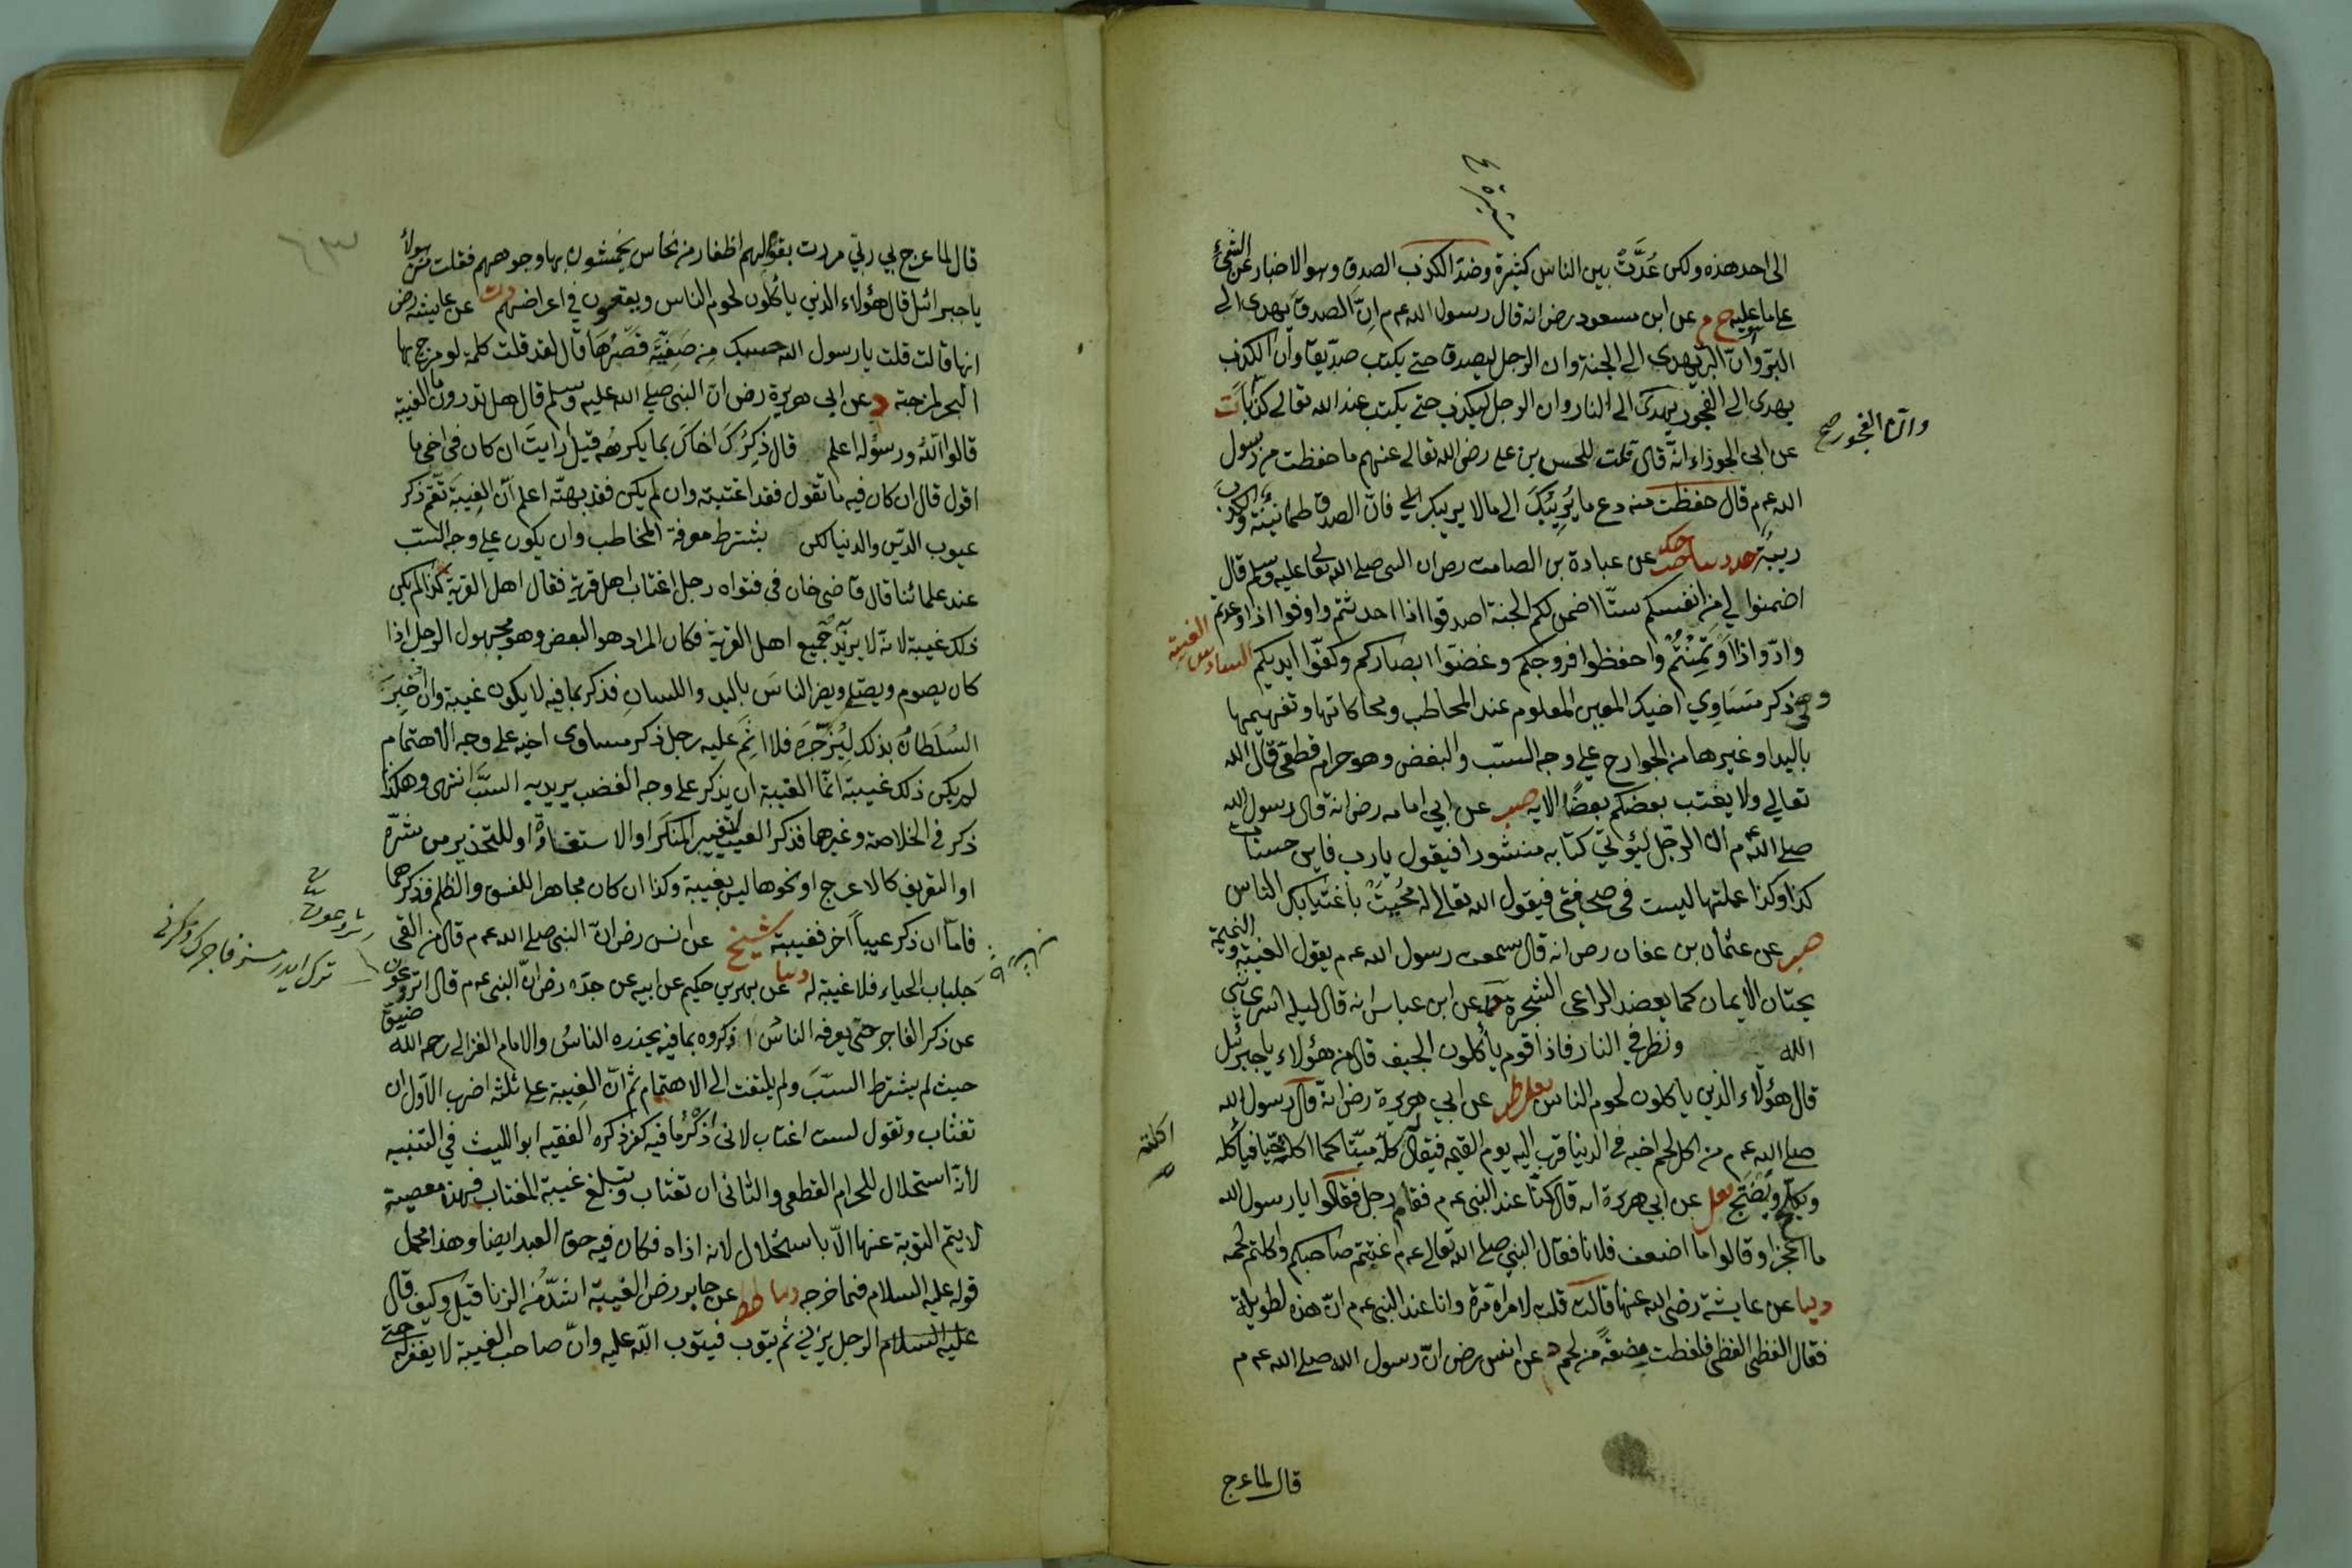 الى احد هذه ولكن عُدَّتْ بين الناس كثيرة وضد الكذب الصدق وهو الاخبار عن الشئ
على ما عليه خ م عن ابن مسعود رض انه قال رسول الله عم م اِنّ الصدق يهدى الى
البر وانّ البر يهدى الى الجنة وان الرجل ليصدق حتى يكتب صدّيقا وان الكذب
يهدى الى الفجور يهدى الى النار وان الرجل ليكذب حتى يكتب عند الله تعالى كذّابا ت
وانّ الفجور صح
عن ابى الجوزاء انّه قال قلت للحسن بن على رضى الله تعالى عنهم ما حفظت من رسول
الله عم م قال حفظت منه دع ما يُرِيبُكَ الى ما لا يريبك فانّ الصدق طمانينة والكذب
ريبة حد دنيا حب حك عن عبادة بن الصامت رض ان النبى صلى الله تعا عليه وسلم قال
اضمنوا لى من انفسكم ستّا اضمن لكم الجنة اصدقوا اذا احدثتم واوفوا اذا وعدتم
وادّوا اذا اؤتمِنْتُمْ واحفظوا فروجكم وغضّوا ابصاركم وكفّوا ايديكم السادس الغيبة
وهى ذكر مَسَاوِي اخيك المعين المعلوم عند المخاطب ومحاكاتها وتفهيمها
باليد او غيرها من الجوارح على وجه السبّ والبغض وهو حرام قطعى قال الله
تعالى ولا يغتب بعضكم بعضًا الايه صب عن ابى امامه رض انه قال رسول الله
صلى الله عم م انّ الرجل ليؤتى كتابه منشورا فيقول يا رب فاين حسنات
كذا وكذا عملتها ليست فى صحيفتى فيقول الله تعالى له مُحِيَتْ باغتيابك الناس
صب عن عثمان بن عفان رض انه قال سمعت رسول الله عم م يقول الغيبة والنميمة
يحتان الايمان كما يعضد الراعى الشجرة حد عن ابن عباس انه قال ليلة اسرى بنبى
الله ونظر فى النار فاذا قوم يأكلون الجيف قال من هؤلاء يا جبرئيل
قال هؤلاء الذين ياكلون لحوم الناس يعلى طب عن ابى هريرة رض انه قال رسول الله
صلى الله عم م من اكل لحم اخيه فى الدنيا قرب اليه يوم القيمة فيقال كله ميّتا كما اكلته حيّا فيأكله
اكلته
ويكلح ويضجّ يعلى عن ابى هريرة انه قال كنّا عند النبى عم م فقام رجل فقالوا يا رسول الله
ما اعجز او قالوا ما اضعف فلانا فقال النبى صلى الله تعالى عم م اغتبتم صاحبكم واكلتم لحمه
دنيا عن عايشة رضى الله عنها قالت قلت لامراة مرة وانا عند النبى عم م انّ هذه لطويلة
فقال الفظى الفظى فلفظت مضغةً من لحم د عن انس رض انّ رسول الله صلى الله عم م
قال لما عرج
قال لما عرج بى ربّى مررت بقوم لهم اظفار من نحاس يخمشون بها وجوههم فقلت من هؤلاء
يا جبرائل قال هؤلاء الذين يأكلون لحوم الناس ويقعون فى اعراضهم د ت عن عايشة رض
انها قالت قلت يا رسول الله حسبك مِن صَفِيَّة قصرها قال لقد قلت كلمة لو مزج بها
البحر لمزجته د عن ابى هريرة رض انّ النبى صلى الله عليه وسلم قال هل تدرون ما الغيبة
قالوا اللهُ ورسوله اعلم قال ذِكْرُكَ اخاكَ بما يكرهُه قيل أرايتَ ان كان فى اخى ما
اقول قال ان كان فيه ما تقول فقد اغتبته وان لم يكن فقد بهتّه اعلم انّ الغِيبَةَ تعمّ ذكر
عيوب الدّين والدنيا لكن يشترط معرفة المخاطب وان يكون على وجه السبّ
عند علمائنا قال قاضى خان فى فتواه رجل اغتاب اهل قرية فقال اهل القرية كذا لم يكن
ذلك غيبة لانّه لا يريد جميع اهل القرية فكان المراد هو البعض وهو مجهول الرجل اذا
كان يصوم ويصلى ويضر الناسَ باليد واللسانِ فذكر بما فيه لا يكون غيبة وان اُخبِرَ
السُلطانُ بذلك لِيُزْجِرَه فلا اثمَ عليه رجل ذكر مساوى اخيه على وجه الاهتمام
لم يكن ذلك غيبة انّما الغيبة ان يذكر على وجه الغضب يريد به السبَّ انتهى وهكذا
ذكر فى الخلاصة وغيرها فذكر العيب لتغيير المنكر او الاستفتاء او للتحذير من شرّه
او التعريف كالاعرج او نحوها ليس بغيبة وكذا ان كان مجاهرا للفسق والظلم فذكرهما
فامّا ان ذكر عيباً آخر فغيبة شيخ عن انس رض انّ النبى صلى الله عم م قال من القى
جلباب الحياء فلا غيبة له دنيا عن بهز بن حكيم عن ابيه عن جدّه رض انّ النبى عم م قال اترعون
عن ذكر الفاجر حتى يعرفه الناسُ اذكروه بما فيه يحذره الناسُ والامام الغزالى رحمه الله ضيق
حيث لم يشترط السبَّ ولم يلتفت الى الاهتمام ثم انّ الغِيبة على ثلثة اضرب الاوّل ان
تغتاب وتقول لست اغتاب لانى اَذْكُرُ ما فيه كفر ذكره الفقيه ابو الليث فى التنبيه
لأنّه استحلال للحرام القطعى والثانى ان تغتاب وتبلغ غيبة المغتاب فهذه معصية
لا يتم التوبة عنها الّا باستحلال لانه اذاه فكان فيه حق العبد ايضا وهذا محمل
قوله عليه السلام فيما خرجه دنيا طط عن جابر رض الغيبة اشدّ من الزنا قيل وكيف قال
عليه السلام الرجل يزنى ثم يتوب فيتوب الله عليه وانّ صاحب الغيبة لا يغفر له حتى